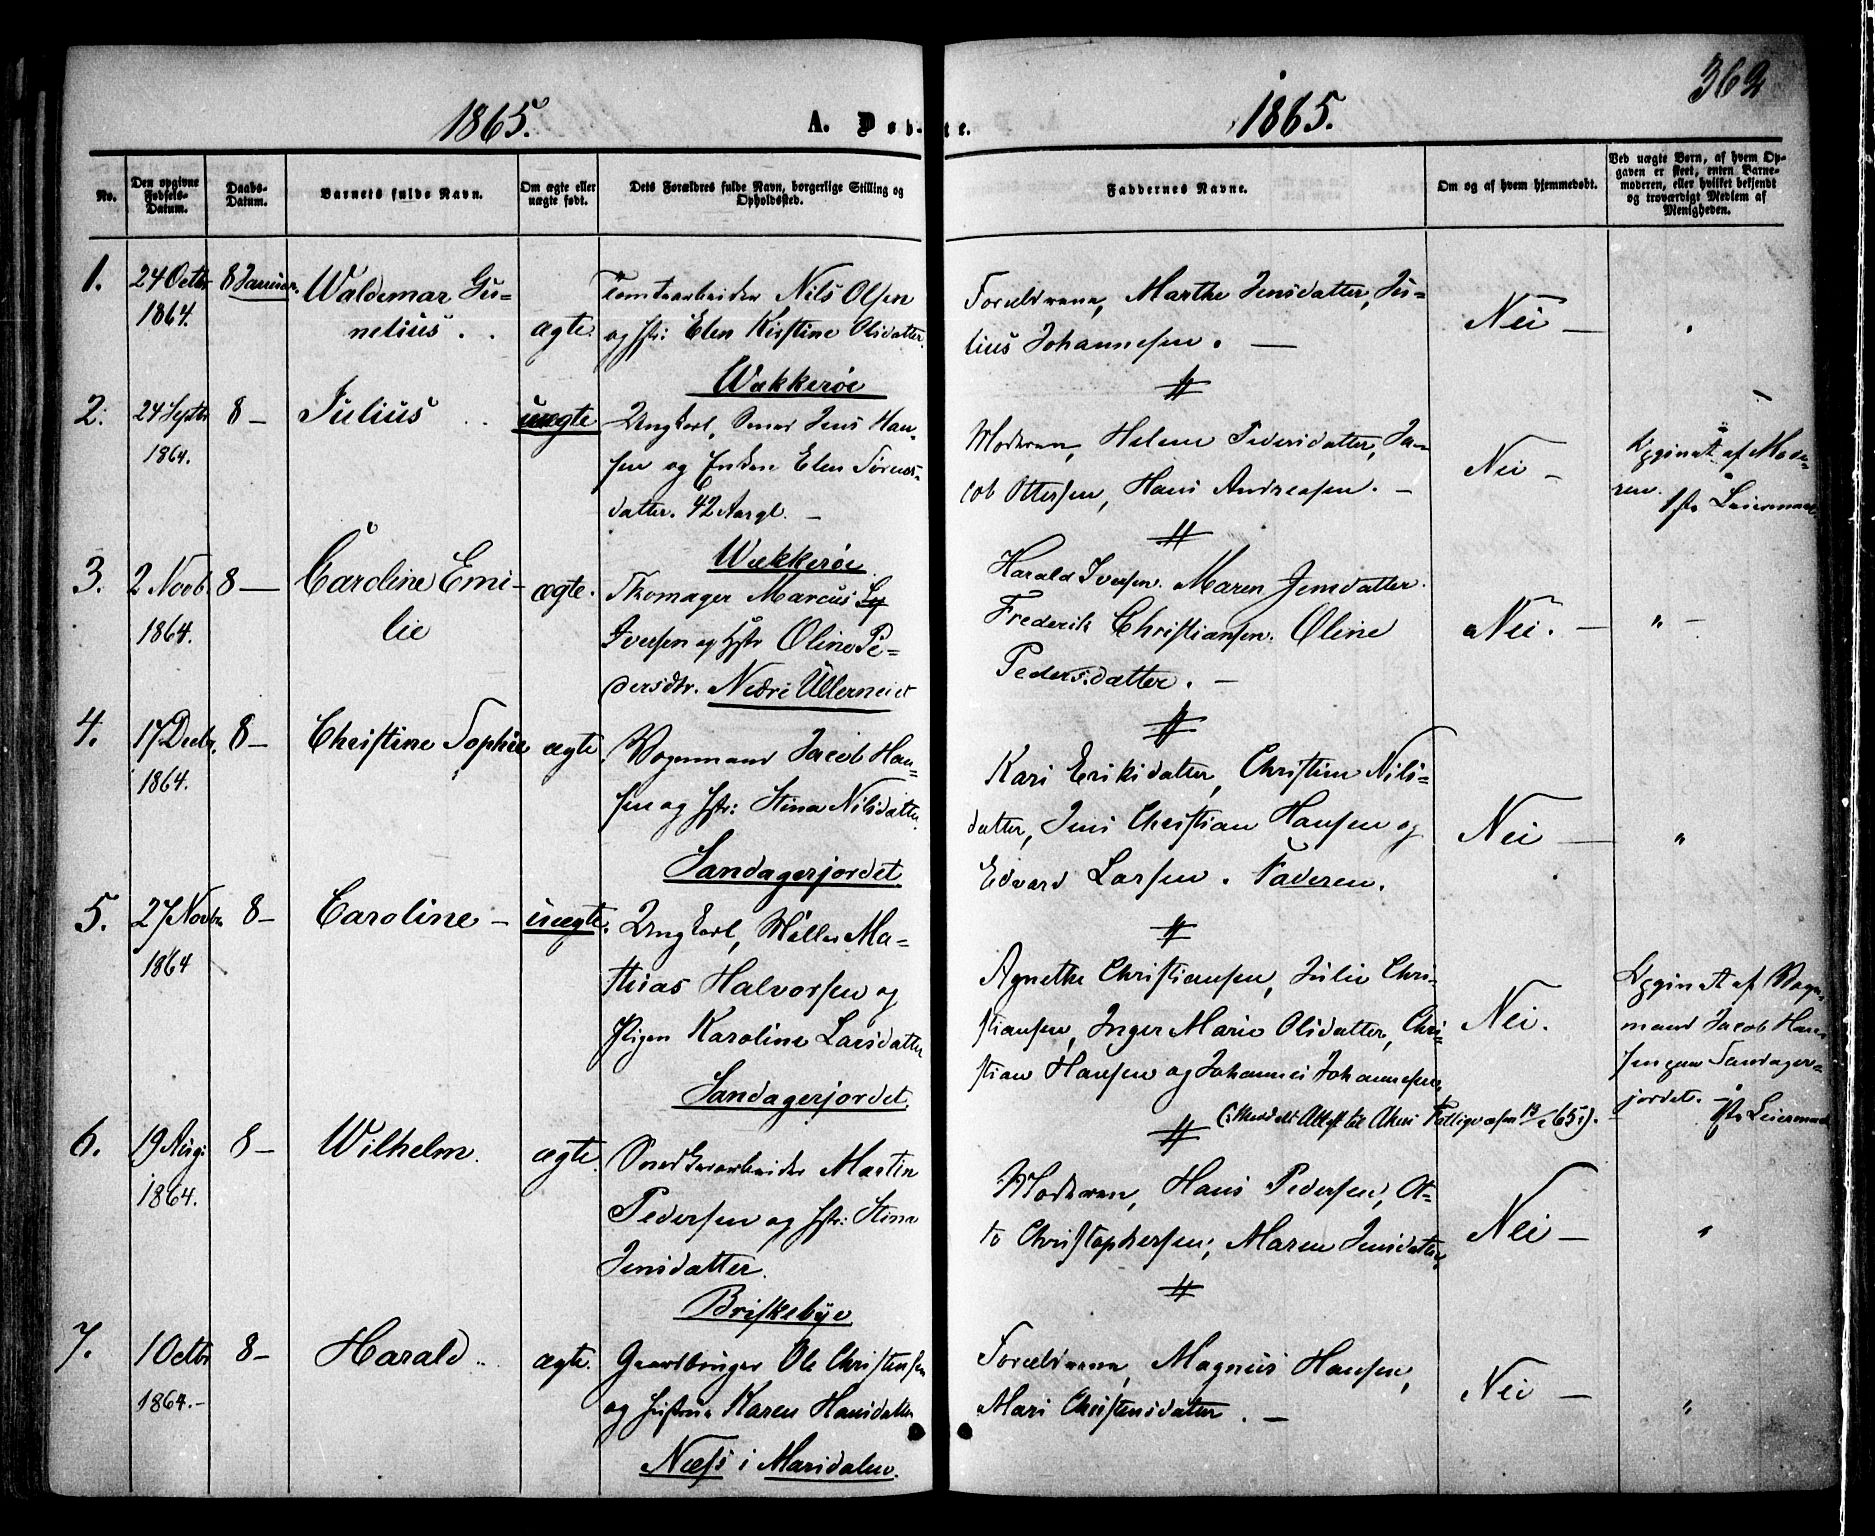 362
1865.
A. Døb-
te.
1865.
No.
Den opgivne
Fødsels-
Datum.
Daabs-
Datum.
Barnets fulde Navn.
Om ægte eller
uægte født.
Dets Forældres fulde Navn, borgerlige Stilling og
Opholdssted.
Faddernes Navne.
Om og af hvem hjemmedøbt.
Ved uægte Børn, af hvem Op-
gaven er skeet, enten Barne-
moderen, eller hvilket bekjendt
og troværdigt Medlem af
Menigheden.
1.
24 Octbr
1864.
8 Januar.
Waldemar Gu-
nelius.
ægte.
Tomtearbeider Nils Olsen
og Hstr: Elen Kirstine Olsdatter.
Wækkerøe
Forældrene, Marthe Jensdatter, Ju-
lius Johannesen. —
Nei —
"
2.
24 Septbr
1864.
8 —
Julius
uægte
Ungkarl, Smed Jens Han-
sen og Enken Elen Sørens-
datter. 42 Aar gl. —
Wækkerøe
Moderen, Helene Pedersdatter, Ja-
cob Ottersen, Hans Andreasen. —
Nei —
Opgivet af Mode-
ren.
1ste Leiermaal.
3.
2 Novb.
1864.
8 —
Caroline Emi-
lie
ægte.
Skomager Marcus
Iversen og Hstr Oline Pe-
dersdtr. Nedre Ullerneiet
Harald Iversen. Maren Jensdatter.
Frederik Christiansen. Oline
Pedersdatter. —
Nei. —
" —
4.
17 Decbr.
1864.
8 —
Christine Sophie
ægte
Vognmand Jacob Han-
sen og Hstr: Stina Nilsdatter.
Sandagerjordet.
Kari Eriksdatter, Christine Nils-
datter, Jens Christian Hansen og
Edvard Larsen. Faderen.
Nei —
"
5.
27 Novbr
1864
8 —
Caroline —
uægte.
Ungkarl, Møller Ma-
thias Halvorsen og
Pigen Karoline Larsdatter
Sandagerjordet.
Agnethe Christiansen, Julie Chri-
stiansen, Inger Marie Olsdatter, Chri-
stian Hansen og Johannes Johannesen.
Nei.
Opgivet af Vogn-
mand Jacob Han-
sen paa Sandager-
jordet. —
1ste Leiermaal
6.
19 Aug:
1864.
8 —
Wilhelm.
ægte.
Snedkerarbeider Martin
Pedersen og Hstr: Stina
Jensdatter.
Briskebye
Moderen, Hans Pedersen, Ot-
to Christophersen, Maren Jensdatter.
Nei —
"
7.
1 Octbr
1864. —
8 —
Harald
ægte.
Gaardbruger Ole Christensen
og Hustru Karen Hansdatter
Næss i Maridalen.
Forældrene, Magnus Hansen,
Mari Christensdatter. —
Nei —
"